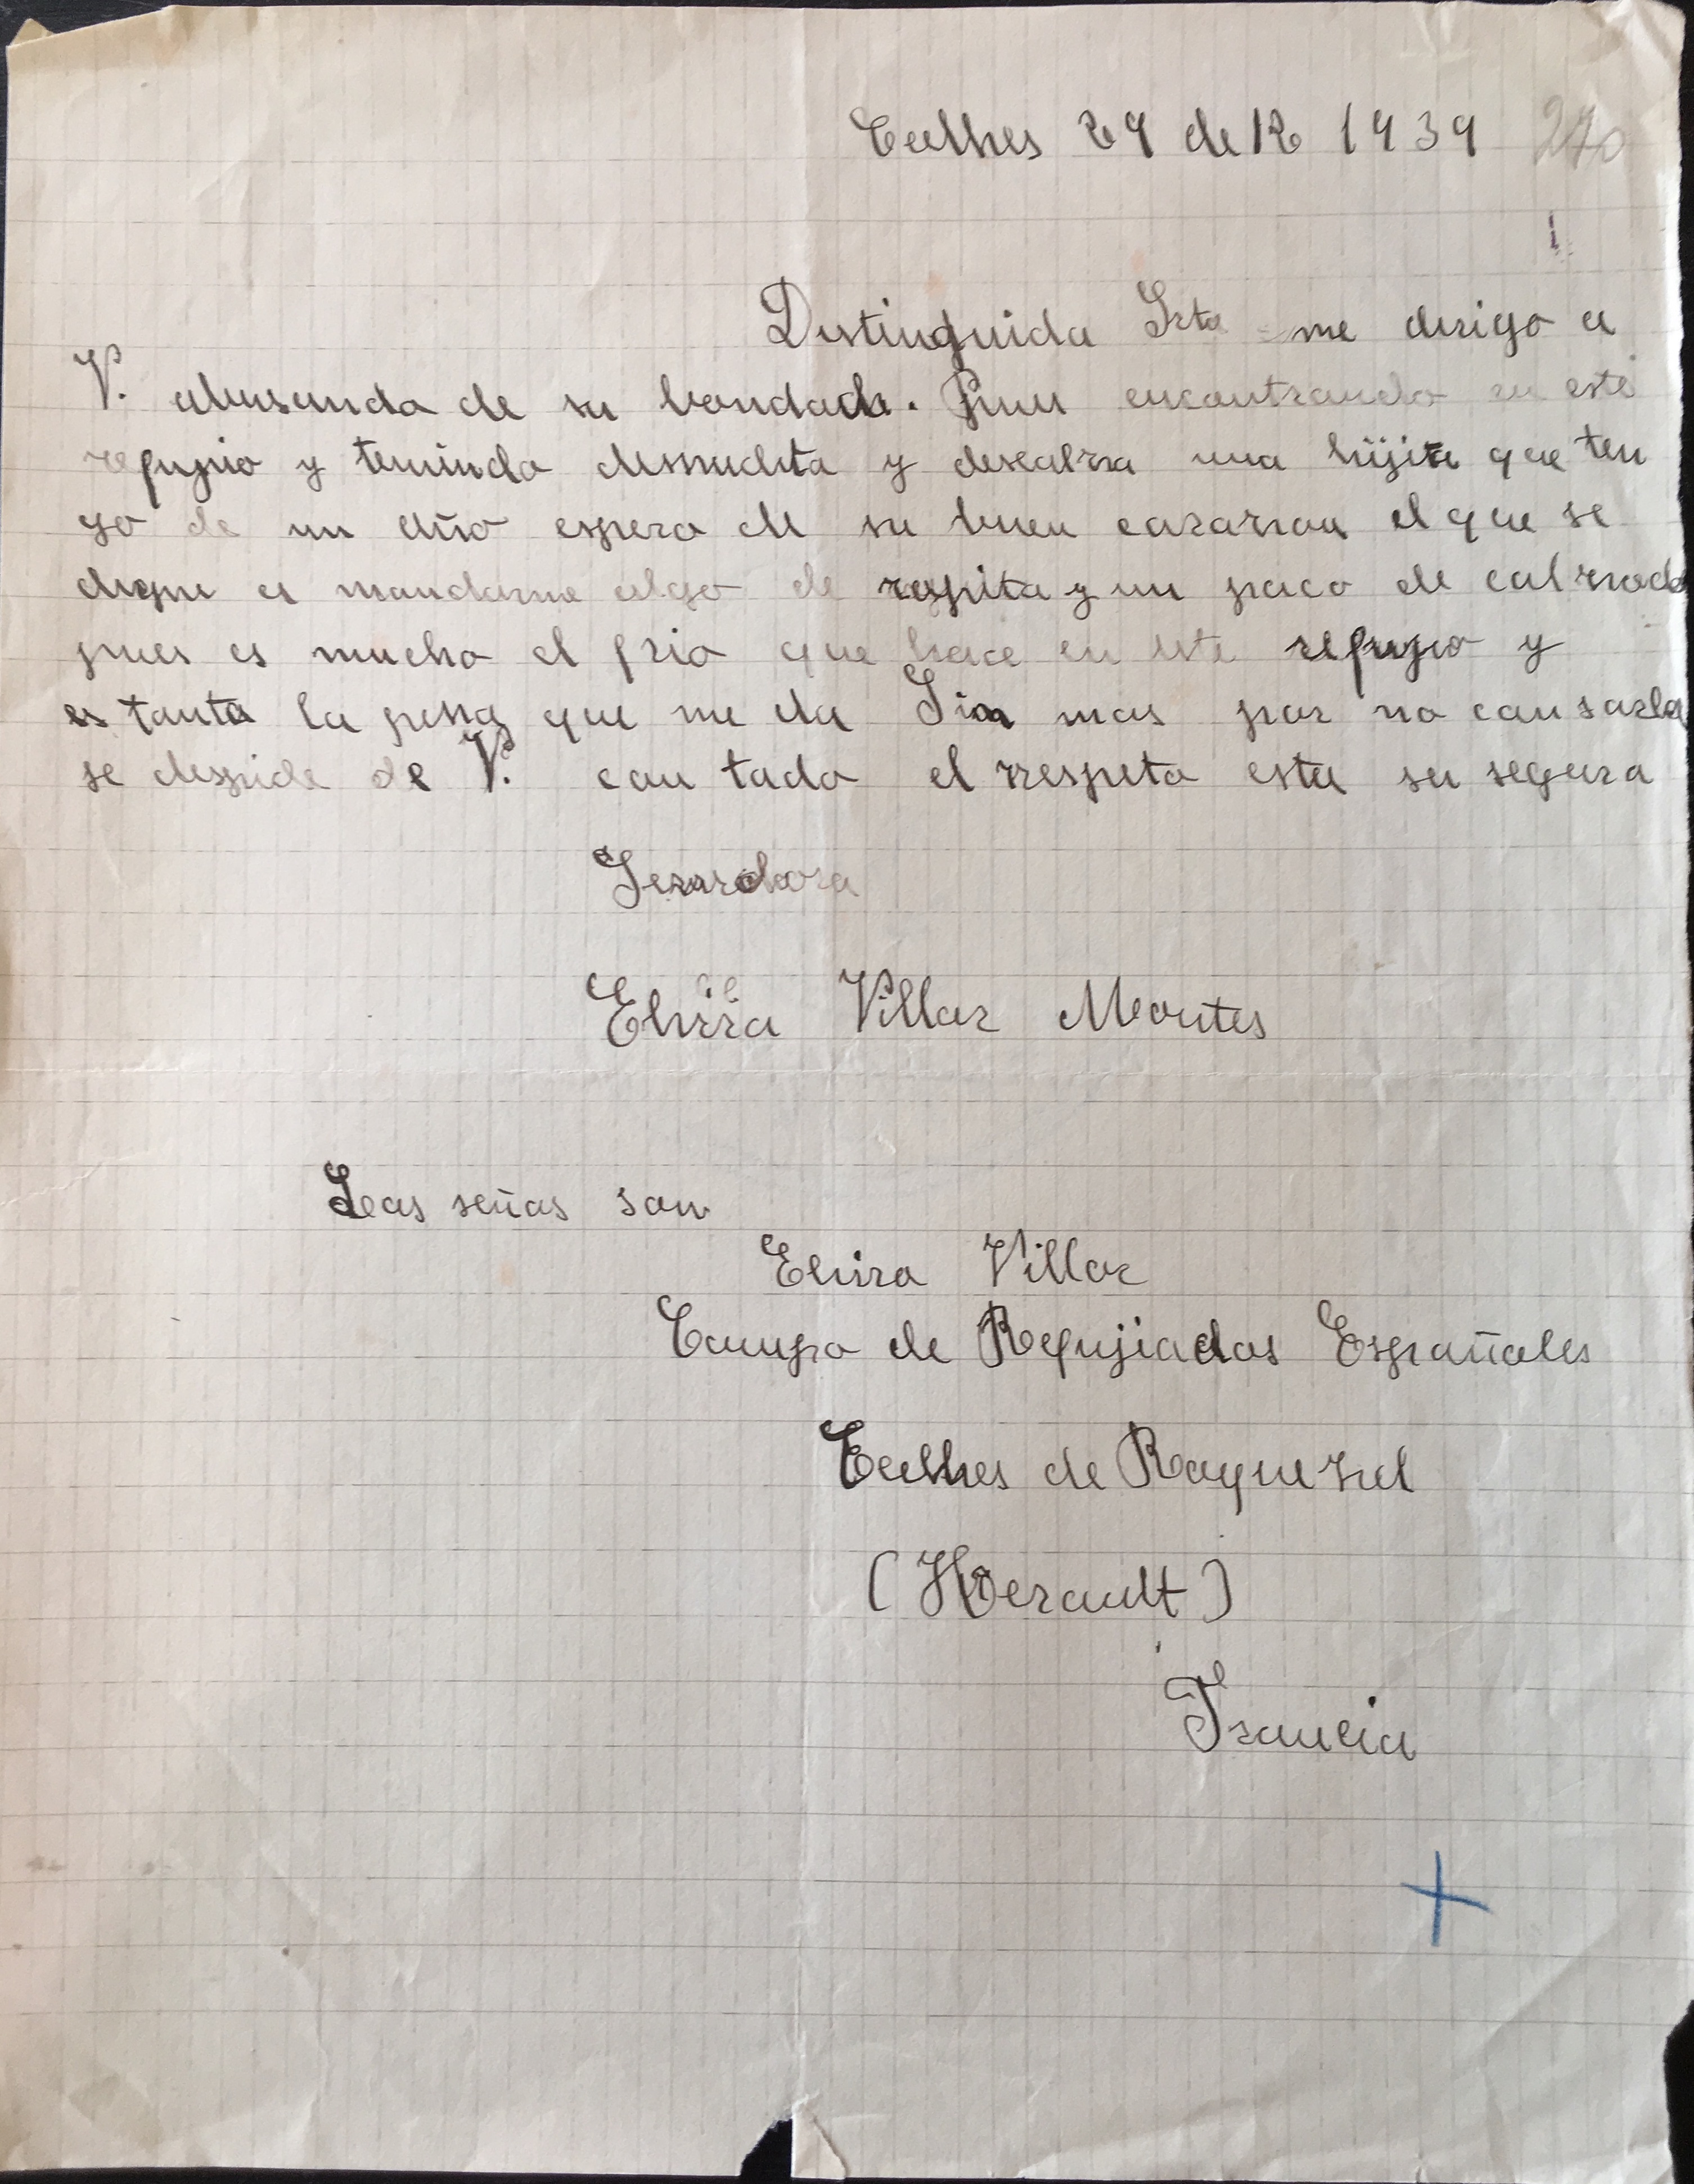 Ceilhes 29 de 12 1939 270
Distinguida Srta me dirigo a
V. abusando de su bondade. Pues encontrando en este
refugio y teniendo desnudita y descalza una hijita que ten
go de un año espero de su buen corazon el que se
digne a mandarme algo de ropita y un poco de calzado
pues es mucho el frio que hace en este refugio y
es tanta la pena que me da Sin mas por no cansarla
se despide de V. con todo el rrespeto esta su segura
Servidora
Elvira Villar Montes
Las señas son
Elvira Villar
Campo de Refujiados Españoles
Ceilhes de Roquezul
(Herault)
Francia